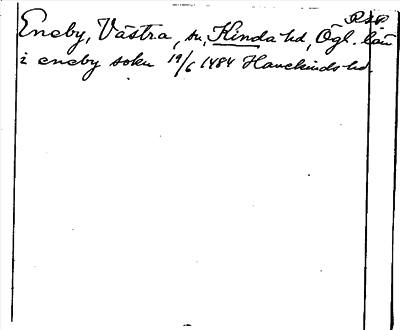 R.S.P.
Eneby, Västra, sn, Kinda hd, Ögl. län
i eneby sokn 19/6 1484 Hanekinds hd.